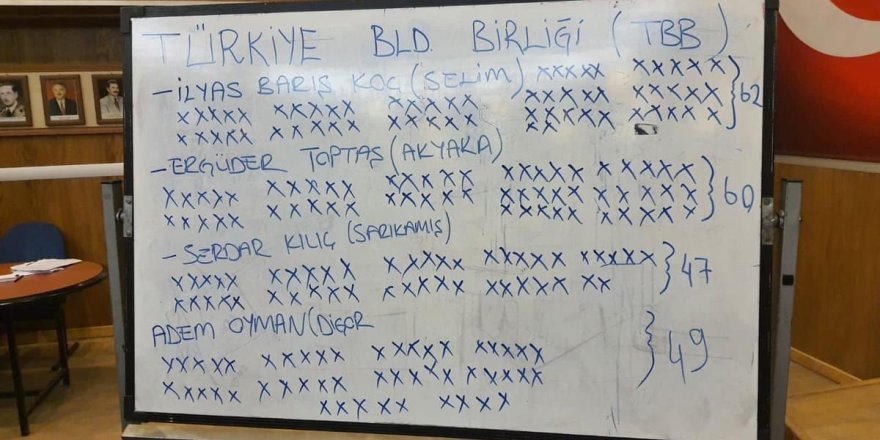 TÜRKİYE BLD. BİRLİĞİ (TBB)
-İLYAS BARIŞ KOÇ (SELİM) xxxxx xxxxx
xxxxx xxxxx xxxxx xxxxx xxxxx } 62
xxxxx xxxxx xxxxx xxxxx xxxxx
xx
-ERGÜDER TOPTAŞ (AKYAKA) xxxxx xxxxx
xxxxx xxxxx xxxxx xxxxx xxxxx } 60
xxxxx xxxxx xxxxx xxxxx xxxxx
-SERDAR KILIÇ (SARIKAMIŞ)
xxxxx xxxxx xxxxx xxxxx xxxxx } 47
xxxxx xxxxx xxxxx xxxxx xx
ADEM OYMAN (DİGOR } 49
xxxxx xxxxx xxxxx xxxxx
xxxxx xxxxx xxxxx xxxxx
xxxxx xxxx